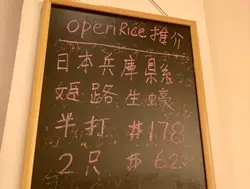 openRice 推介
日本兵庫県糸
姫路生蠔
半打 $178
2只 $62